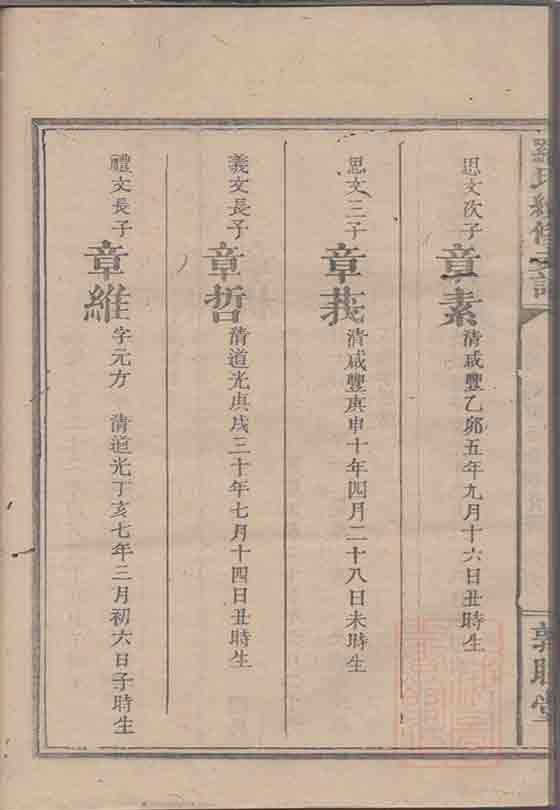 思文次子 章素 清咸豐乙卯五年九月十六日丑時生
思文三子 章莪 清咸豐庚申十年四月二十八日未時生
義文長子 章哲 清道光庚戌三十年七月十四日丑時生
禮文長子 章維 字元方 清道光丁亥七年三月初六日子時生